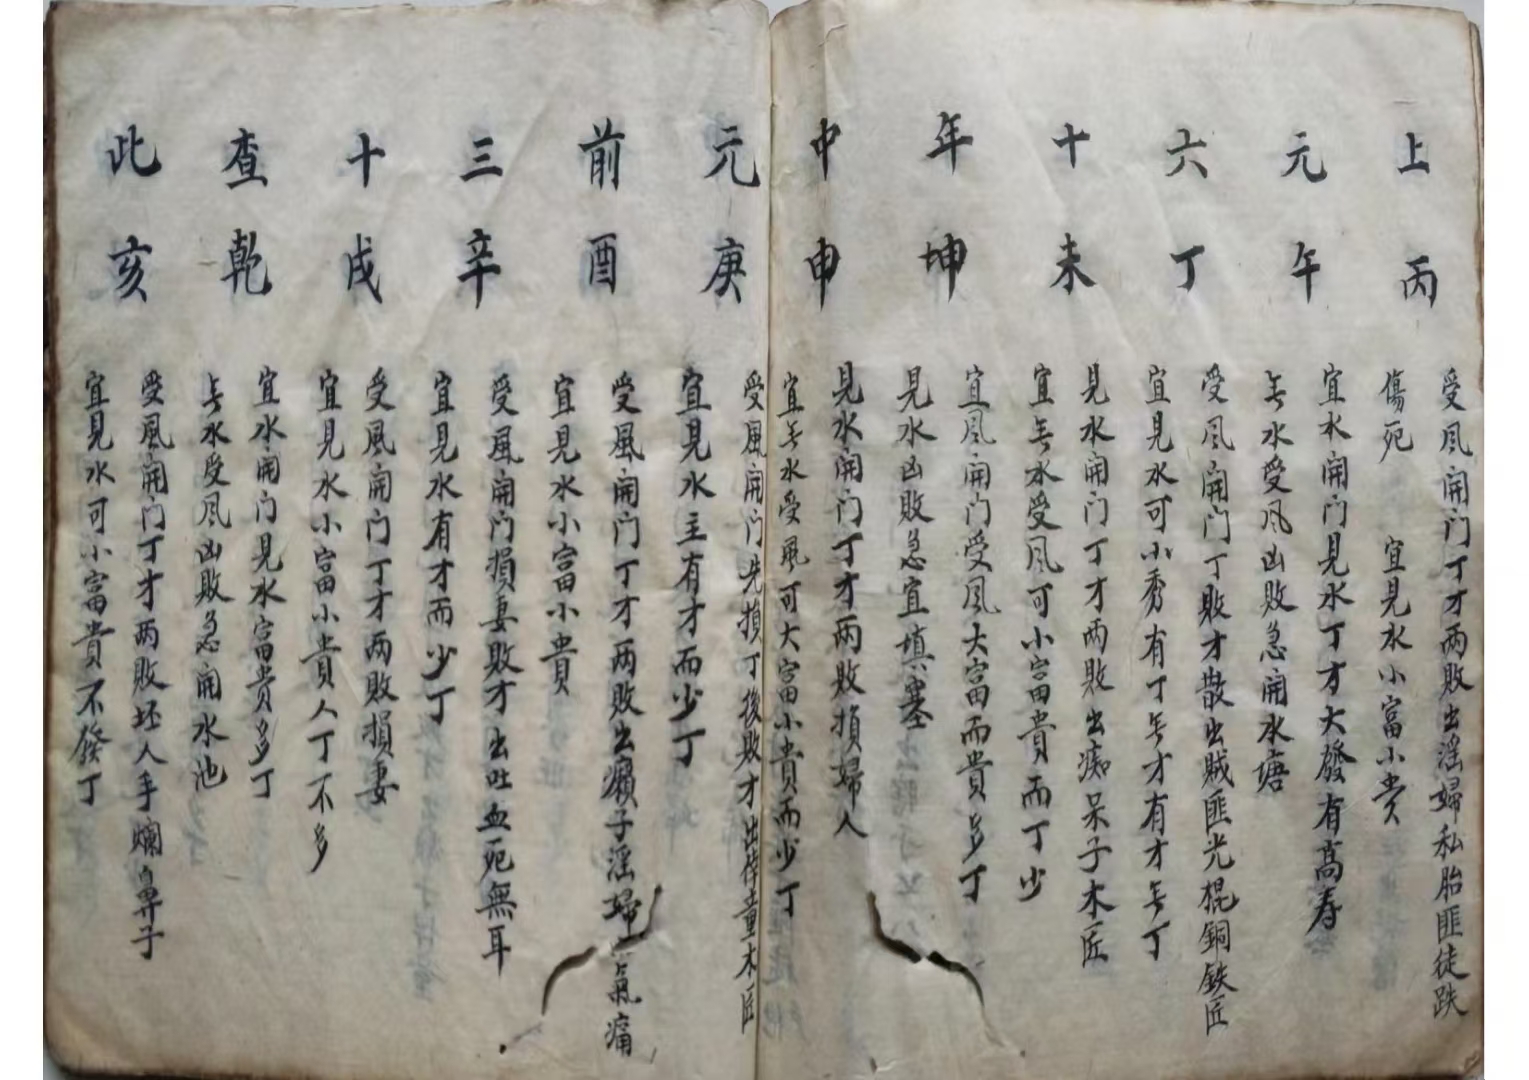 上元六十年中元前三十查此
丙
受风開门丁才两敗出滛婦私胎匪徒跌
傷死 宜見水小富小貴
午
宜水開门見水丁才大發有高寿
旡水受风凶敗急開水塘
丁
受风開门丁敗才散出賊匪光棍銅鉄匠
宜見水可小秀有丁旡才有才旡丁
未
見水開门丁才两敗出痴呆子木匠
宜旡水受风可小富貴而丁少
坤
宜风開门受风大富而貴多丁
見水凶敗急宜填塞
申
見水開门丁才兩敗損婦人
宜旡水受風可大富小貴而少丁
庚
受風開门先損丁後敗才出童木匠
宜見水主有才而少丁
酉
受風開门丁才两敗出癩子滛婦氣痛
宜見水小富小貴
辛
受風開门損妻敗才出吐血死無耳
宜見水有才而少丁
戌
受風開门丁才两敗損妻
宜見水小富小貴人丁不多
乾
宜水開门見水富貴多丁
旡水受风凶敗急開水池
亥
受風開门丁才两敗坯人手爛鼻子
宜見水可小富貴不發丁